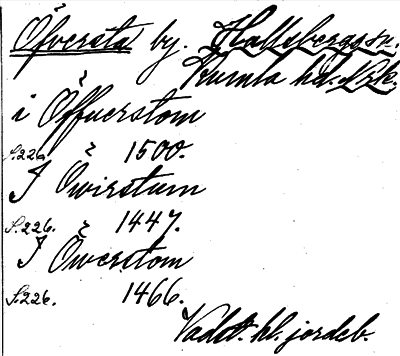 Öfversta by. Hallsbergs sn.
Kumla hd. Nrk.
i Öffuerstom
S. 226. 1500.
I Owirstum
S. 226. 1447.
I Öwerstom
S. 226. 1466.
Vadst. kl. jordeb.